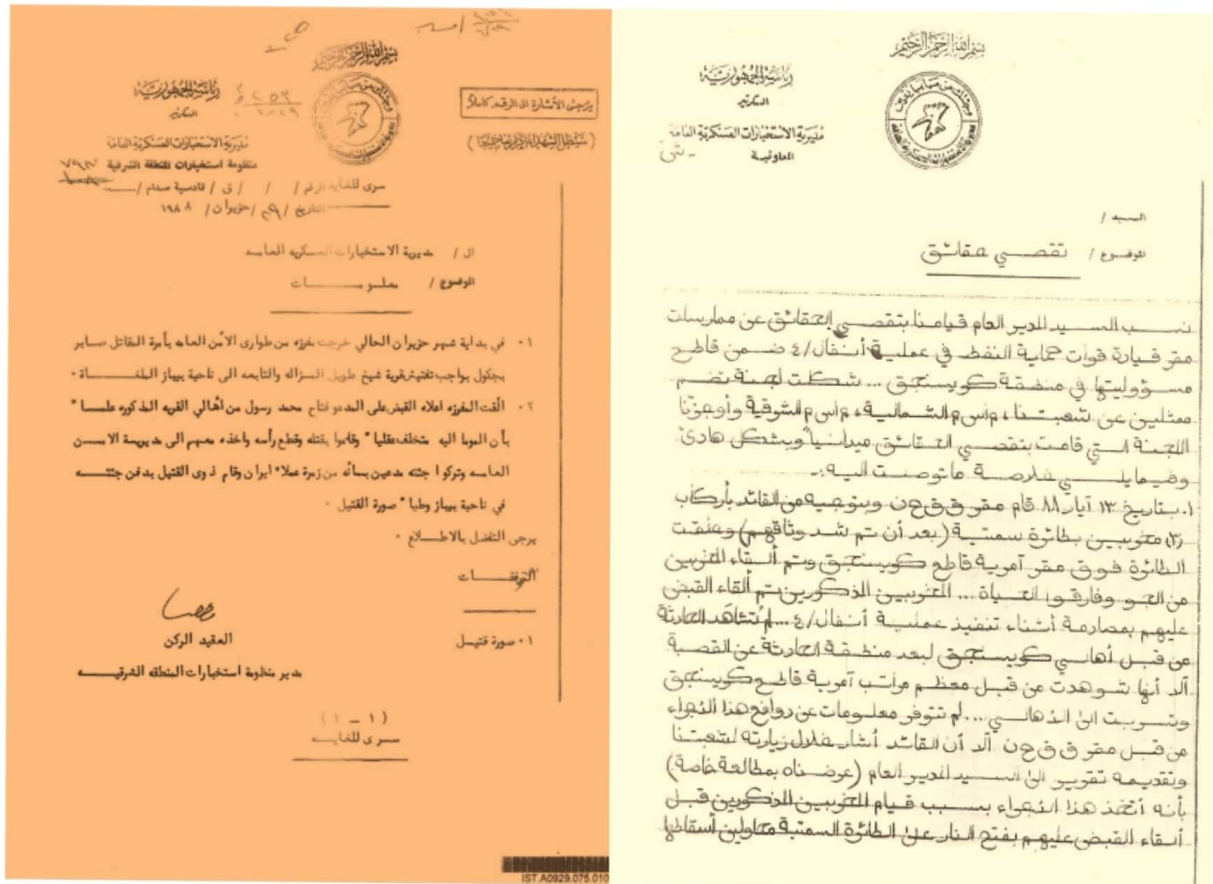 بسم الله الرحمن الرحيم
رئاسة الجمهورية
السكرتير
مديرية الاستخبارات العسكرية العامة
منظومة استخبارات المنطقة الشرقية
يرجى الأشارة الى الرقم كاملاً
سرى للغايه الرقم / / / ق / قادسية صدام /
التاريخ / ٢٩ / حزيران / ١٩٨٨
ال / مديرية الاستخبارات العسكريه العامه
الموضوع / معلومـــات
١٠ في بداية شهر حزيران الحالي خرجت مفرزه من طوارى الأمن العامه بأمرة المقاتل صابر
بجكول بواجب تفتيش قرية شيخ طويل المزاله والتابعه الى ناحية بيباز الملغـــاة ٠
٢٠ القت المفرزه اعلاه القبض على المدعو فتاح محمد رسول من أهالي القريه المذكوره علمـا"
بأن الموما اليه متخلف عقليا" وقاموا بقتله وقطع رأسه واخذه معهم الى مديريـــة الامــن
العامــه وتركوا جثته مدعين بــأنه من زمرة عملا° ايران وقام ذوى القتيل بدفن جثتـــه
في ناحية بيباز وطيا" صورة القتيل ٠
يرجى التفضل بالاطـــلاع ٠
المرفقـــات
١٠ صورة قتيــل
العقيد الركن
مدير منظومة استخبارات المنطقه الشرقيـــه
(١ – ١)
سرى للغايــه
IST.A0929.075.010
بسم الله الرحمن الرحيم
رئاسة الجمهورية
السكرتير
مديرية الاستخبارات العسكرية العامة
المعاونيـة
السيد /
الموضوع / تقصي حقائق
نسب السيد المدير العام قيامنا بتقصي الحقائق عن ممارسات
مقر قيادة قوات حماية النفط في عملية أنفال/٤ ضمن قاطع
مسؤوليتها في منطقة كويسنجق ... شكلت لجنة تضم
ممثلين عن شعبتنا ، م أ س م الشمالية ، م أ س م الشرقية وأوعزنا
اللجنة التي قامت بتقصي الحقائق ميدانياً وبشكل هادئ
وفيما يلي خلاصة ما توصلت اليه :ـ
١. بتاريخ ١٣ آيار ٨٨ قام مقر ق ق ح ن وبتوجيه من القائد بأركاب
(٣) مخربين بطائرة سمتية (بعد أن تم شد وثاقهم) وحلقت
الطائرة فوق مقر آمرية قاطع كويسنجق وتم ألقاء المخربين
من الجو وفارقوا الحياة ... المخربين المذكورين تم ألقاء القبض
عليهم بمصادمة أثناء تنفيذ عملية أنفال/٤ ... لم تشاهد الحادثة
من قبل أهالي كويسنجق لبعد منطقة الحادثة عن القصبة
ألا أنها شوهدت من قبل معظم مراتب آمرية قاطع كويسنجق
وتسربت الى الأهالي ... لم تتوفر معلومات عن دوافع هذا الأجراء
من قبل مقر ق ق ح ن ألا أن القائد أشار خلال زيارته لشعبتنا
وتقديمه تقرير الى السيد المدير العام (عرضناه بمطالعة خاصة)
بأنه أتخذ هذا الأجراء بسبب قيام المخربين المذكورين قبل
ألقاء القبض عليهم بفتح النار على الطائرة السمتية محاولين أسقاطها